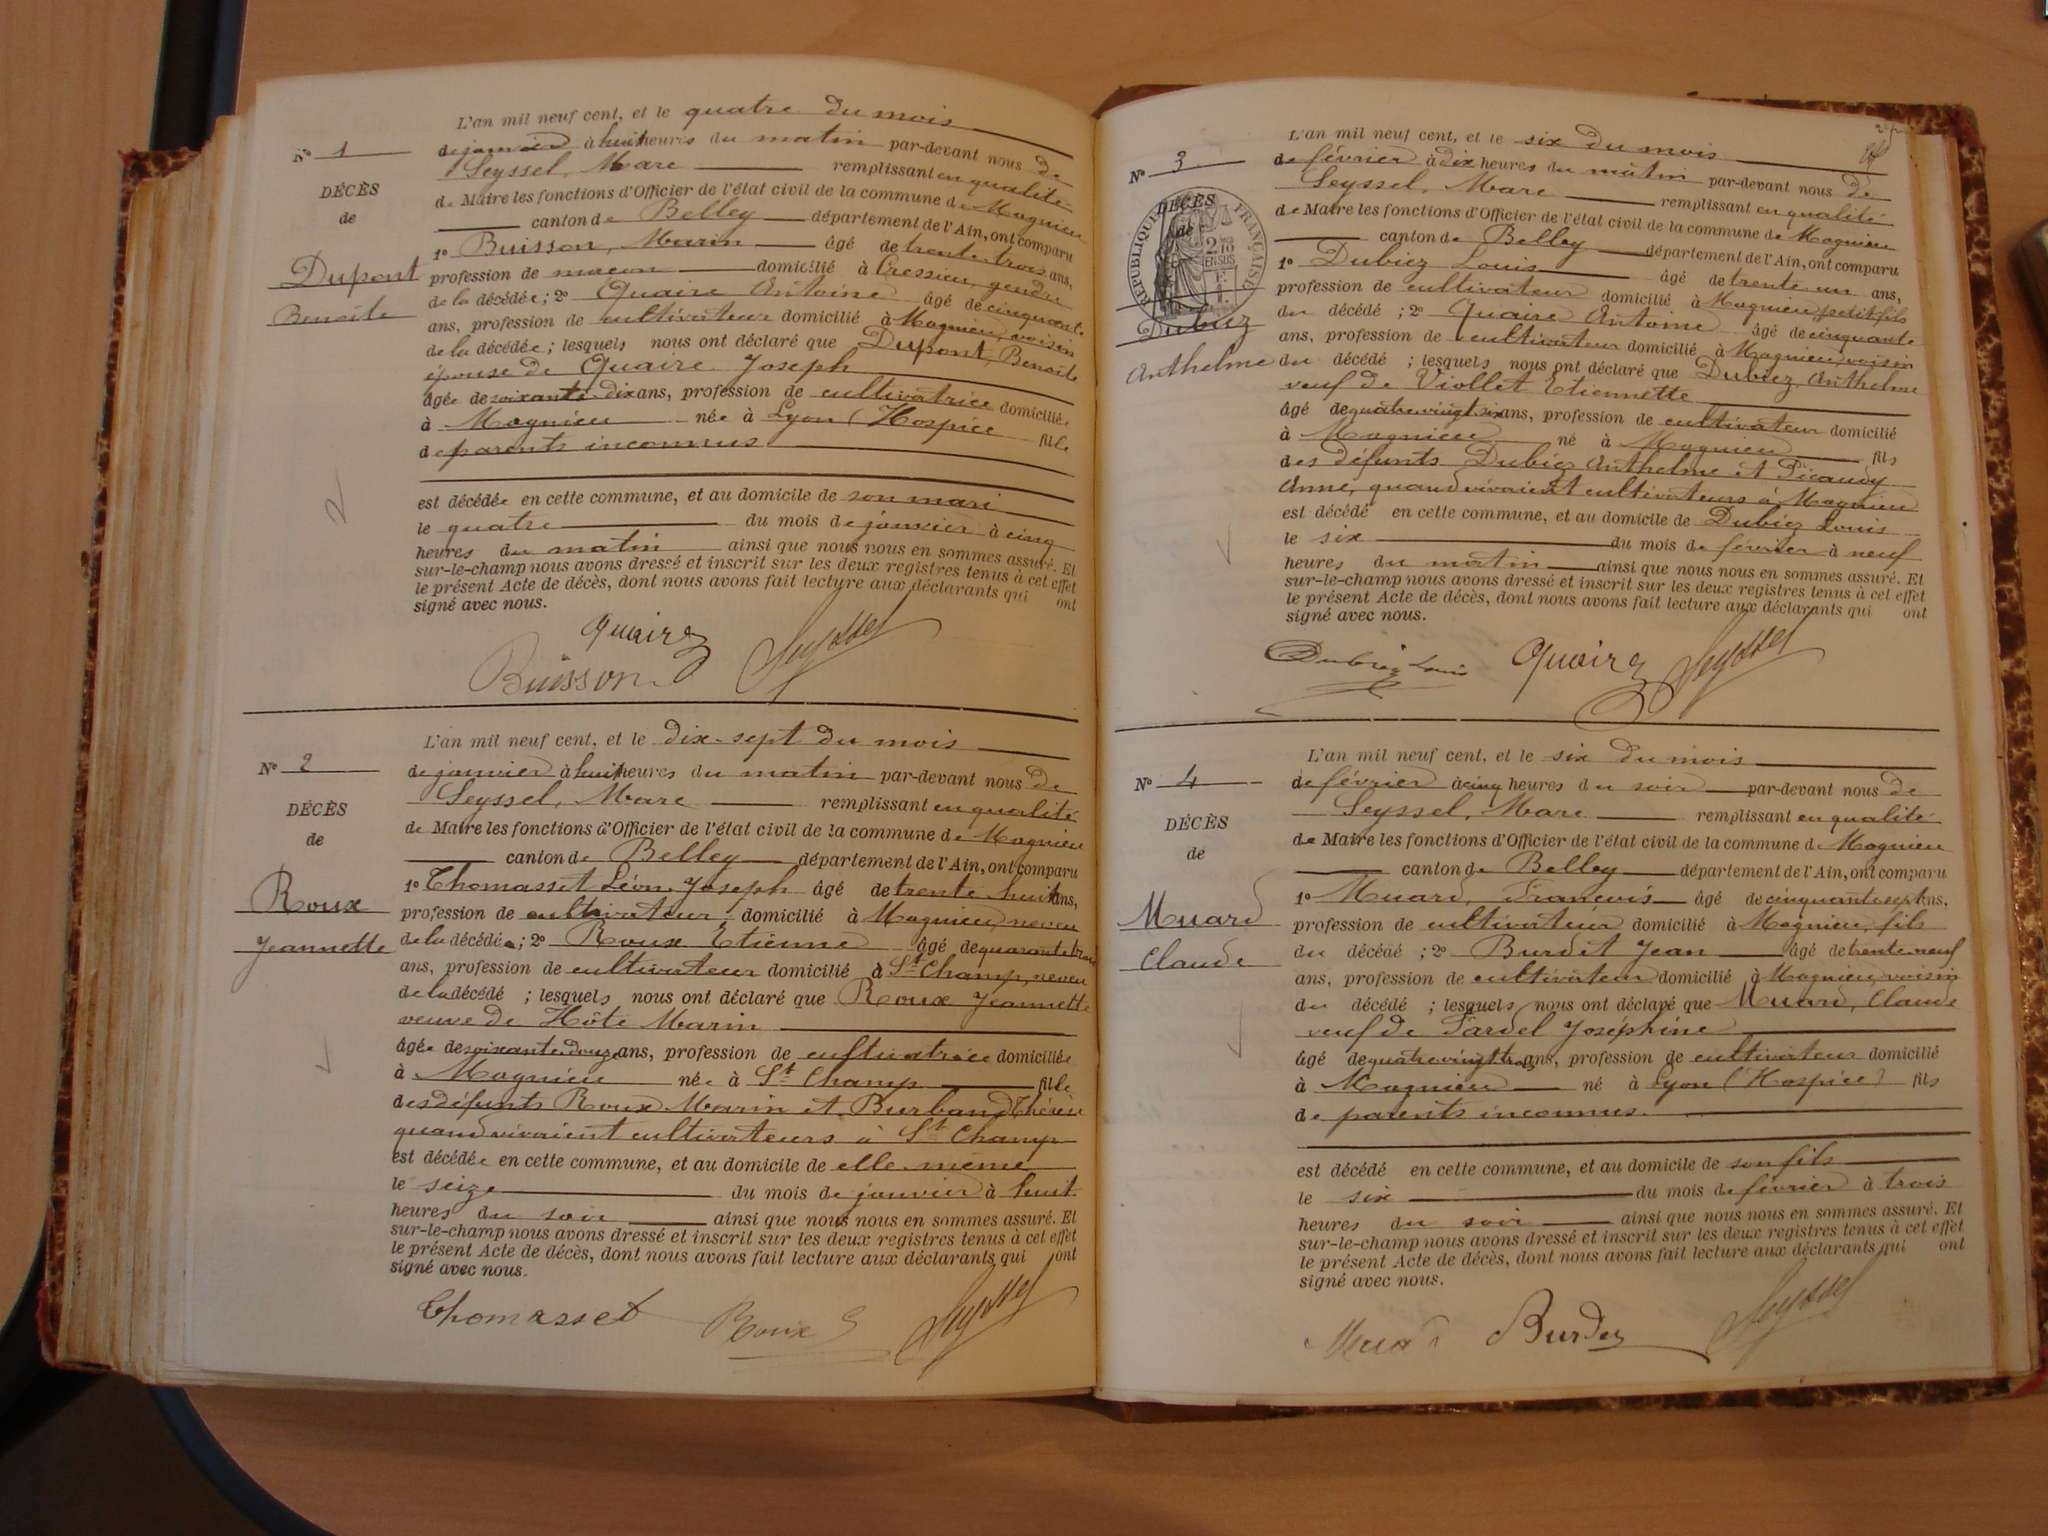 L'an mil neuf cent, et le quatre du mois
N° 1
de janvier à huit heures du matin par-devant nous de
Seyssel, Marc remplissant en qualité
DÉCÈS
de Maire les fonctions d'Officier de l'état civil de la commune de Magnieu
de
canton de Belley département de l'Ain, ont comparu
1° Buisson, Marin âgé de trente trois ans,
Dupont
profession de maçon domicilié à Cressieu, gendre
Benoîte
de la décédée ; 2° Quaire Antoine âgé de cinquante
ans, profession de cultivateur domicilié à Magnieu, voisin
de la décédée ; lesquels nous ont déclaré que Dupont, Benoîte
épouse de Quaire Joseph
âgée de soixante-dix ans, profession de cultivatrice domiciliée
à Magnieu née à Lyon (Hospice fille
de parents inconnus
est décédée en cette commune, et au domicile de son mari
le quatre du mois de janvier à cinq
heures du matin ainsi que nous nous en sommes assuré. Et
sur-le-champ nous avons dressé et inscrit sur les deux registres tenus à cet effet
le présent Acte de décès, dont nous avons fait lecture aux déclarants qui ont
signé avec nous.
Quaire
Buisson Seyssel
L'an mil neuf cent, et le dix-sept du mois
N° 2
de janvier à huit heures du matin par-devant nous de
Seyssel, Marc remplissant en qualité
DÉCÈS
de Maire les fonctions d'Officier de l'état civil de la commune de Magnieu
de
canton de Belley département de l'Ain, ont comparu
1° Thomasset Léon Joseph âgé de trente huit ans,
Roux
profession de cultivateur domicilié à Magnieu, neveu
Jeannette
de la décédée ; 2° Roux Etienne âgé de quarante trois
ans, profession de cultivateur domicilié à St Champ, neveu
de la décédé ; lesquels nous ont déclaré que Roux Jeannette
veuve de Hôte Marin
âgée de soixante douze ans, profession de cultivatrice domiciliée
à Magnieu née à St Champ fille
des défunts Roux Marin et Burband Thérèse
quand vivaient cultivateurs à St Champ
est décédée en cette commune, et au domicile de elle-même
le seize du mois de janvier à huit
heures du soir ainsi que nous nous en sommes assuré. Et
sur-le-champ nous avons dressé et inscrit sur les deux registres tenus à cet effet
le présent Acte de décès, dont nous avons fait lecture aux déclarants qui ont
signé avec nous.
Thomasset Roux Seyssel
L'an mil neuf cent, et le six du mois
N° 3
de février à dix heures du matin par-devant nous de
Seyssel, Marc remplissant en qualité
DÉCÈS
de
RÉPUBLIQUE FRANÇAISE
de Maire les fonctions d'Officier de l'état civil de la commune de Magnieu
canton de Belley département de l'Ain, ont comparu
1° Dubiez Louis âgé de trente un ans,
profession de cultivateur domicilié à Magnieu petit-fils
Dubiez
du décédé ; 2° Quaire Antoine âgé de cinquante
ans, profession de cultivateur domicilié à Magnieu, voisin
Anthelme
du décédé ; lesquels nous ont déclaré que Dubiez, Anthelme
veuf de Viollet Etiennette
âgé de quatre vingt six ans, profession de cultivateur domicilié
à Magnieu né à Magnieu fils
des défunts Dubiez Anthelme et Picaudy
Anne, quand vivaient cultivateurs à Magnieu
est décédé en cette commune, et au domicile de Dubiez Louis
le six du mois de février à neuf
heures du matin ainsi que nous nous en sommes assuré. Et
sur-le-champ nous avons dressé et inscrit sur les deux registres tenus à cet effet
le présent Acte de décès, dont nous avons fait lecture aux déclarants qui ont
signé avec nous.
Dubiez Louis Quaire Seyssel
L'an mil neuf cent, et le six du mois
N° 4
de février à cinq heures du soir par-devant nous de
Seyssel, Marc remplissant en qualité
DÉCÈS
de Maire les fonctions d'Officier de l'état civil de la commune de Magnieu
de
canton de Belley département de l'Ain, ont comparu
1° Muard, François âgé de cinquante sept ans,
Muard
profession de cultivateur domicilié à Magnieu, fils
Claude
du décédé ; 2° Burdet Jean âgé de trente neuf
ans, profession de cultivateur domicilié à Magnieu, voisin
du décédé ; lesquels nous ont déclaré que Muard, Claude
veuf de Fardel Joséphine
âgé de quatre vingt trois ans, profession de cultivateur domicilié
à Magnieu né à Lyon (Hospice) fils
de parents inconnus.
est décédé en cette commune, et au domicile de son fils
le six du mois de février à trois
heures du soir ainsi que nous nous en sommes assuré. Et
sur-le-champ nous avons dressé et inscrit sur les deux registres tenus à cet effet
le présent Acte de décès, dont nous avons fait lecture aux déclarants qui ont
signé avec nous.
Muard Burdet Seyssel